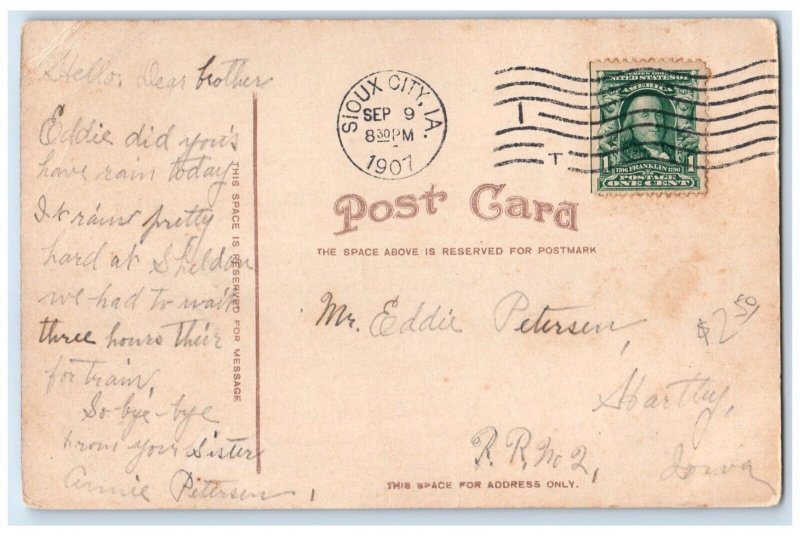 Hello. Dear brother
Eddie did you's
have rain today
It raint pretty
hard at Sheldon
we had to wait
three hours their
for train,
So bye-bye
From your Sister
Annie Petersen,
THIS SPACE IS RESERVED FOR MESSAGE
SIOUX CITY, IA.
SEP 9
8 30 PM
1907
1
T
SERIES 1902
UNITED STATES OF
AMERICA
1706 FRANKLIN 1790
1 POSTAGE 1
ONE CENT
Post Card
THE SPACE ABOVE IS RESERVED FOR POSTMARK
Mr. Eddie Petersen,
$2.50
Hartley,
R.R. No 2,
Iowa
THIS SPACE FOR ADDRESS ONLY.